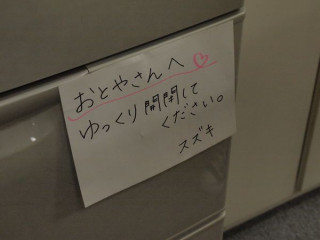 おとやさんへ♡
ゆっくり開閉して
ください。
スズキ